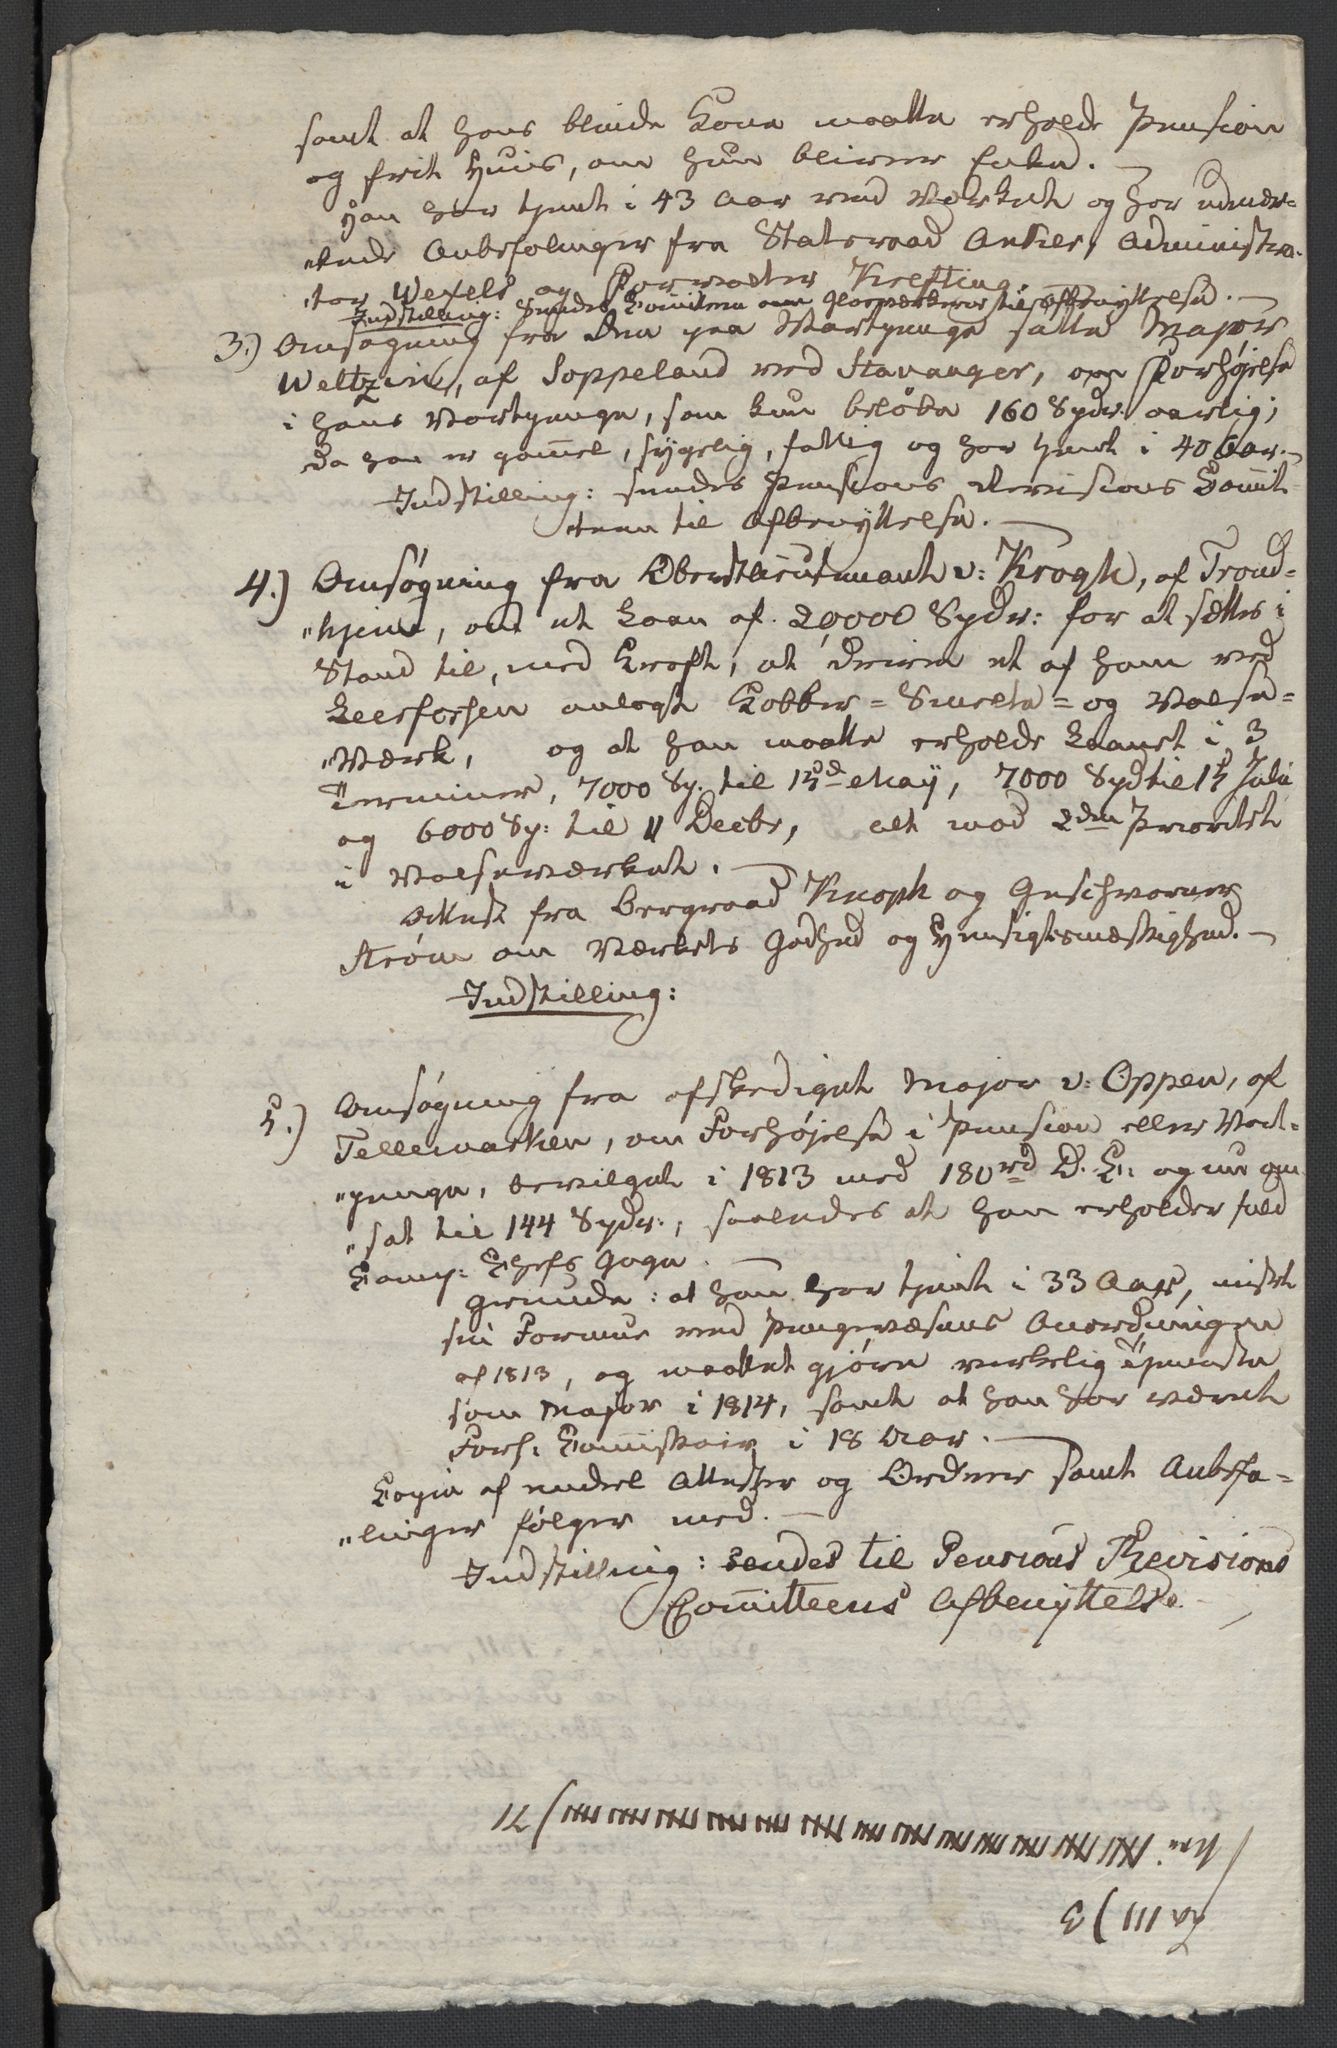 samt at hans blinde Kone maatte erholde Pension
og frit Huus, om hun bliver Enke. —
Han har tjent i 43 Aar ved Værket og har udmær-
„kede Anbefalinger fra Statsraad Anker, Administra-
„tor Wexels og Forvalter Krefting.
Indstilling: sendes Comiteen om Glasværkerne til Afbenyttelse. —
3.) Ansøgning fra den paa Vartpenge satte Major
Weltzin, af Soppeland ved Stavanger, om Forhøjelse
i hans Vartpenge, som kun beløbe 160 Spdr. aarlig;
da han er gam̄el, sygelig, fattig og har tjent i 40 Aar. —
Indstilling: sendes Pensions Revisions Com̄it-
teen til Afbenyttelse. —
4.) Ansøgning fra Oberstlieutenant v: Krogh, af Trond-
„hjem, om et Laan af 20000 Spdr: for at sættes i
Stand til, med Kraft, at drive et af ham ved
Leerfossen anlagt Kobber = Smelte = og Valse =
„Værk, og at han maatte erholde Laanet i 3
Terminer, 7000 Sp. til 15de May, 7000 Spd til 15 Julii
og 6000 Sp: til 11 Decbr, alt mod 2den Prioritet
i Valseværket. —
Attest fra Bergraad Knoph og Geschworner
Strøm om Værkets Godhed og Hensigtsmæssighed. —
Indstilling:
5.) Ansøgning fra afskediget Major v: Oppen, af
Tellemarken, om Forhøjelse i Pension eller Vart-
„penge, bevilget i 1813 med 180 rd D. C. og nu om
„sat til 144 Spdr:, saaledes at han erholder fuld
Comp: Chefs Gage. —
Grunde: at han har tjent i 33 Aar, mistet
sin Formue ved Pengevæsens Anordningen
af 1813, og maattet gjøre virkelig Tjeneste
som Major i 1814, samt at han har været
Forl: Com̄issair i 18 Aar. —
Copie af endeel Attester og Ordrer samt Anbefa-
„linger følger med. —
Indstilling: sendes til Pensions Revisions
Com̄itteens Afbenyttelse.
71
III) 3